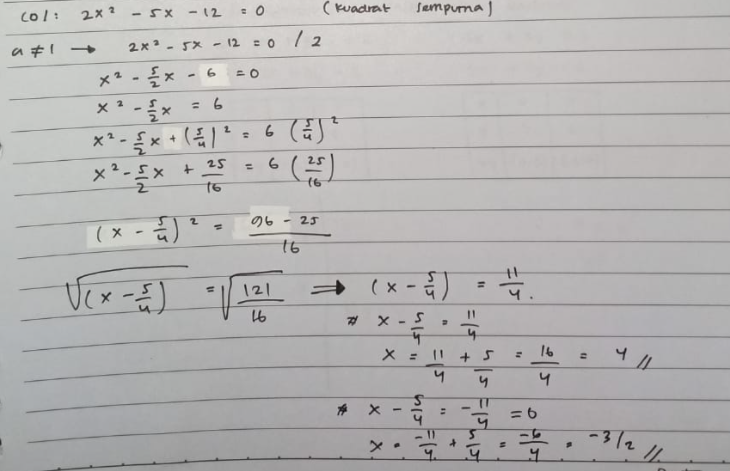 co/: 2x² - 5x - 12 = 0 (kuadrat sempurna)
a ≠ 1 → 2x² - 5x - 12 = 0 / 2
x² - 5/2 x - 6 = 0
x² - 5/2 x = 6
x² - 5/2 x + (5/4)² = 6 (5/4)²
x² - 5/2 x + 25/16 = 6 (25/16)
(x - 5/4)² = 96 - 25 / 16
√(x - 5/4) = √121/16 ⇒ (x - 5/4) = 11/4.
* x - 5/4 = 11/4
x = 11/4 + 5/4 = 16/4 = 4 //
* x - 5/4 = -11/4 = 0
x = -11/4 + 5/4 = -6/4 = -3/2 //